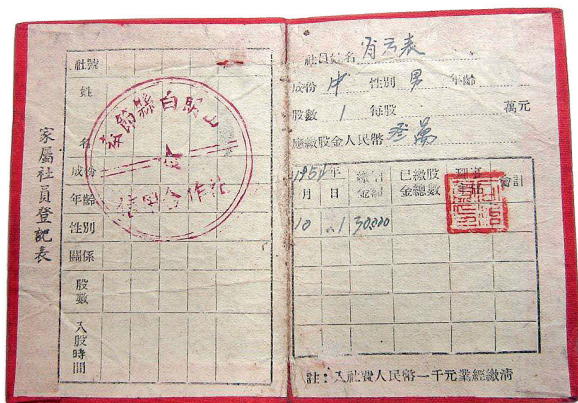 家屬社員登記表
社號
姓
名
成份
年齡
性別
關係
股數
入股時間
白駅山
信用合作社
社員姓名 肖云表
成份 中 性別 男 年齡
股數 1 每股 萬元
應繳股金人民幣 叁萬
195 年
月 日
已繳股金總數
會計
10 1 30,000
註：入社費人民幣一千元業經繳清